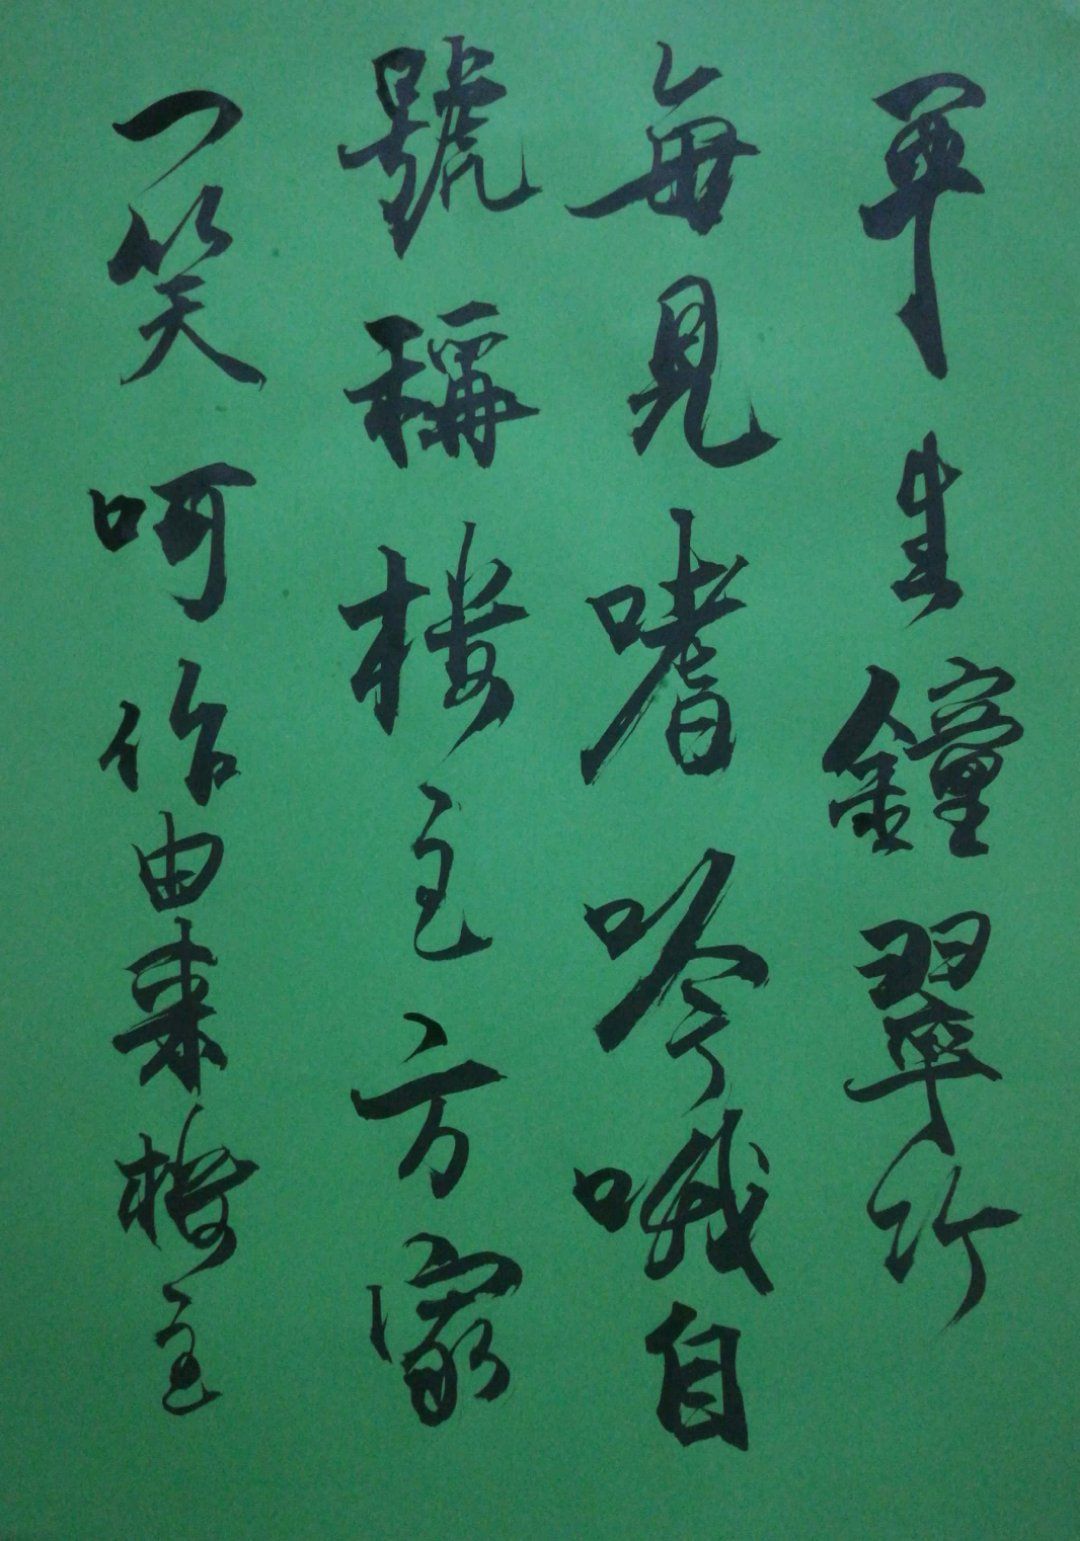 平生鐘翠竹
每見嗜吟哦自
號稱楼主方家
一笑呵作由来楼主